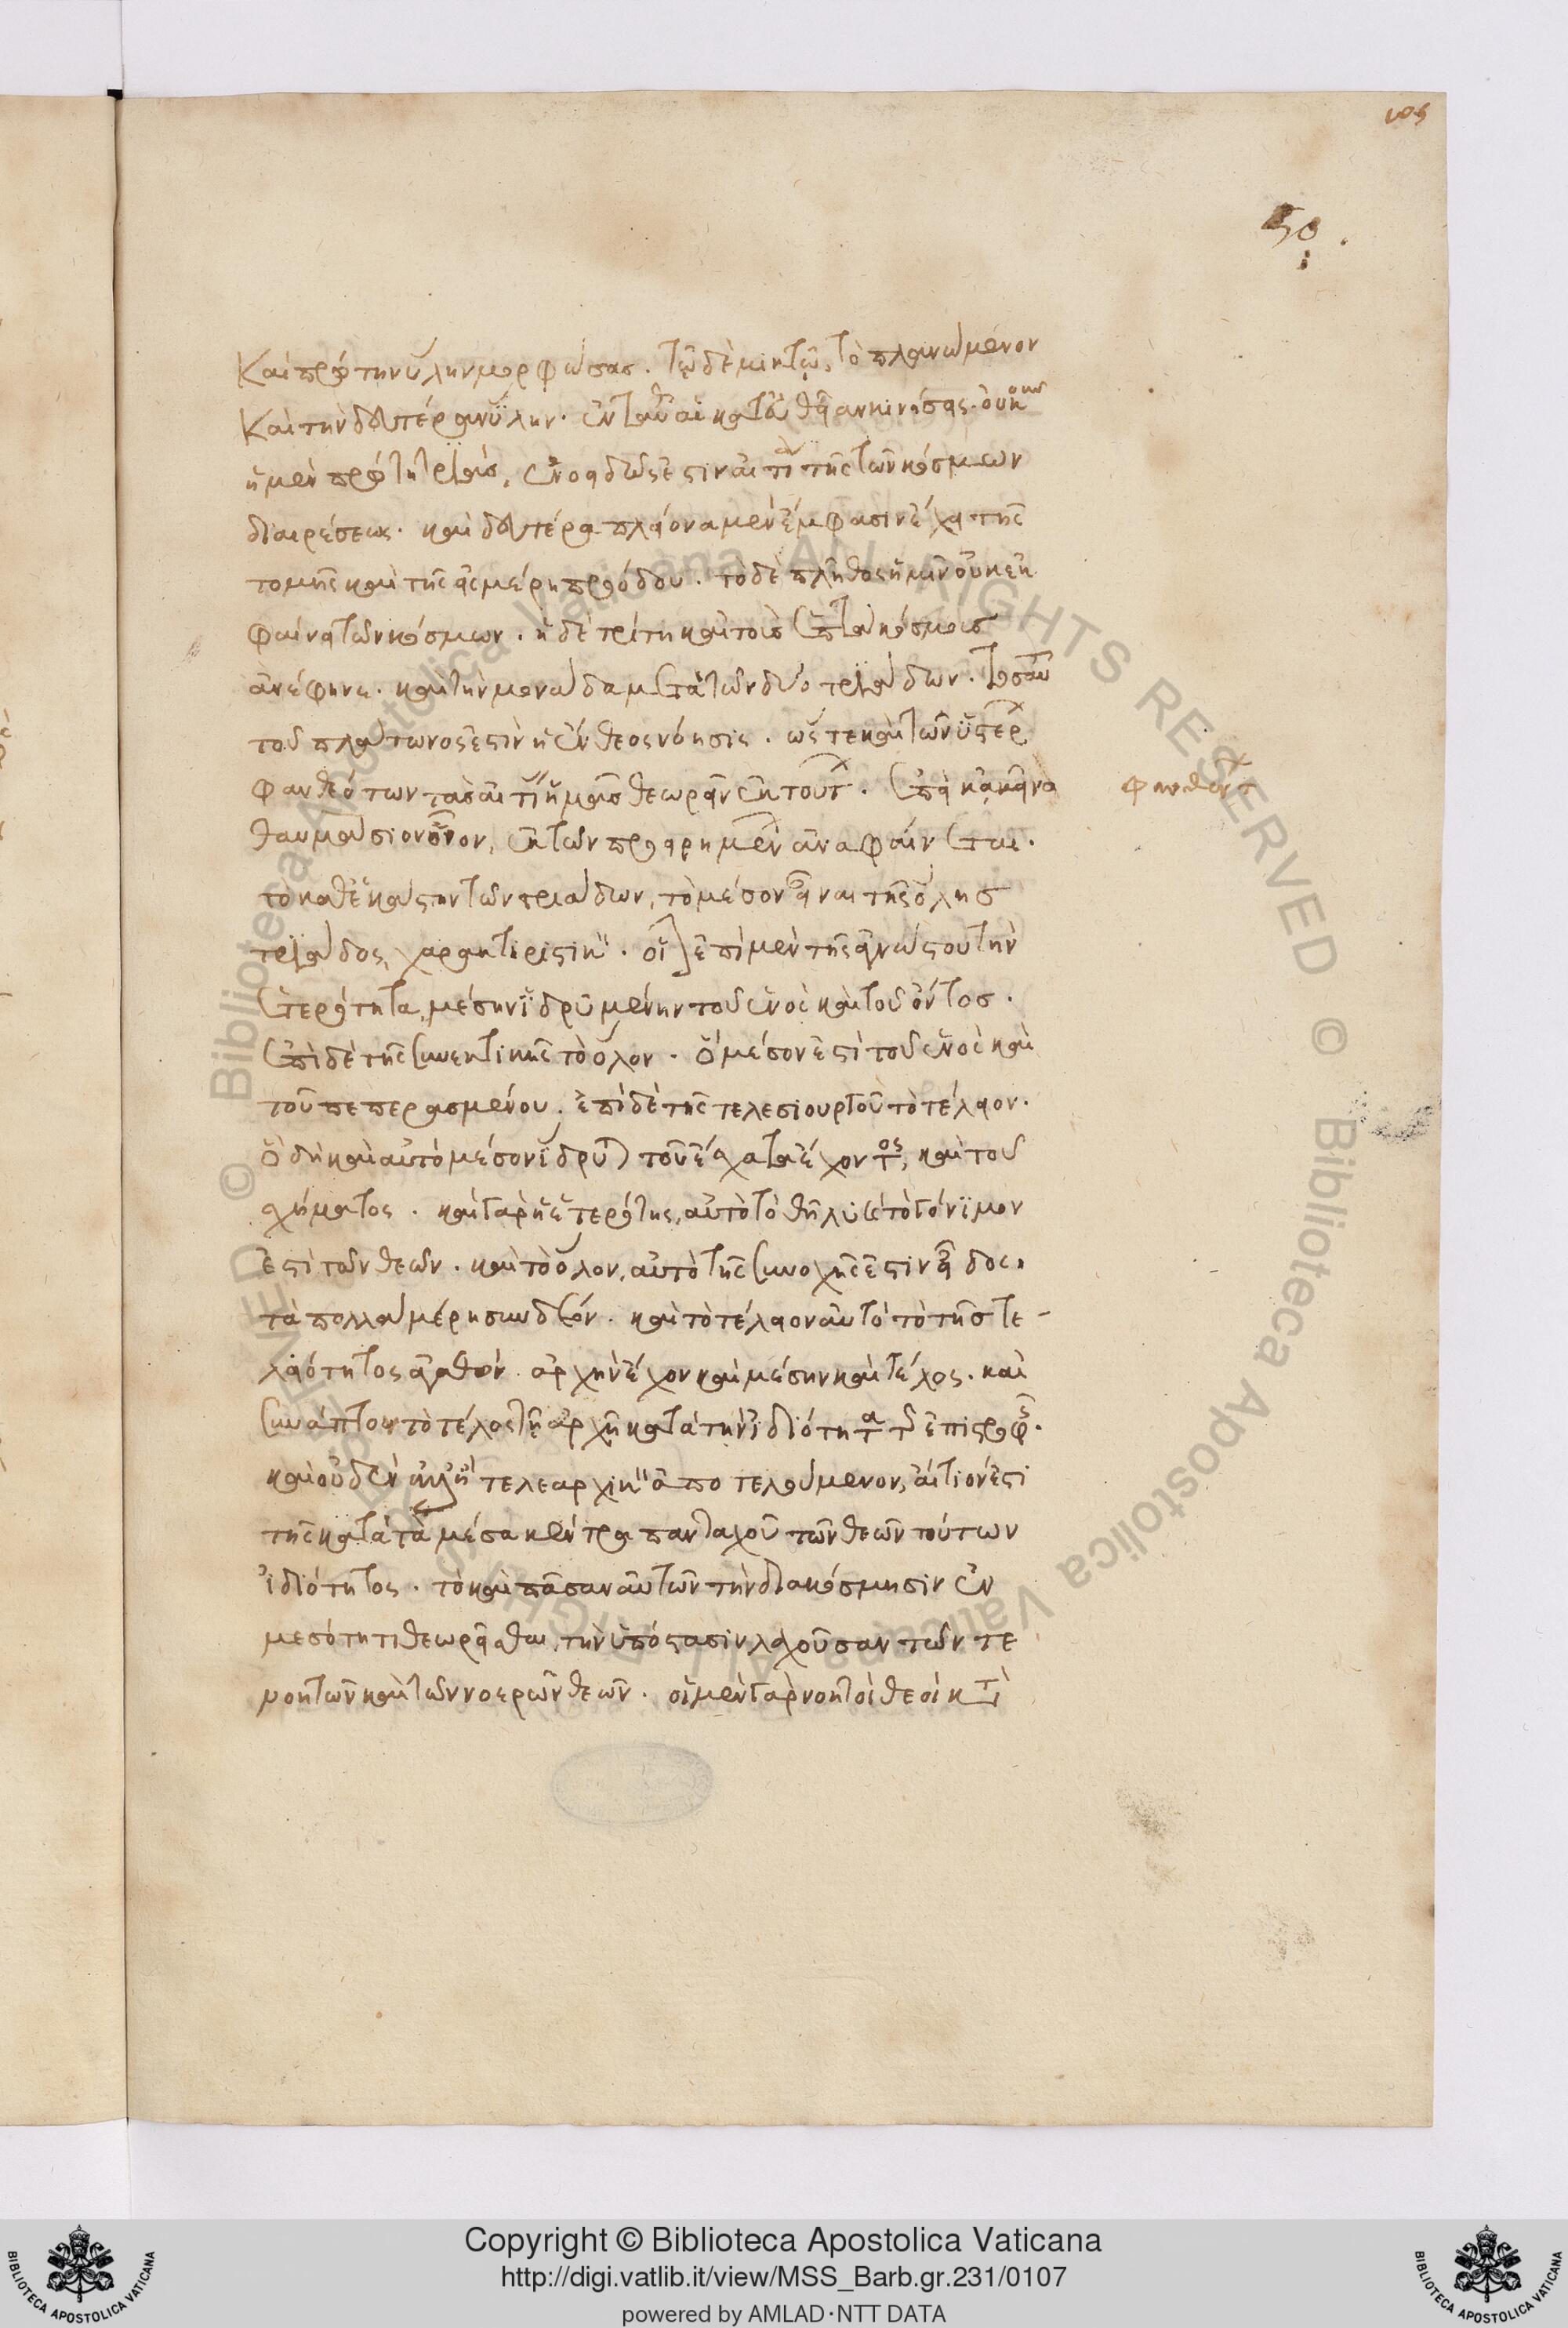 105
50.
Καὶ πρώτην ὕλην μορφώσας. τῷ δὲ μικτῷ, τὸ πλανώμενον
Καὶ τὴν δευτέραν ὕλην. ἐνταῦθα
ἡ μὲν πρώτη τριὰς, ἑνοειδῶς ἐστιν αἰτία τῆς τῶν κόσμων
διαιρέσεως. καὶ δευτέρα πλείονα μὲν ἔμφασιν ἔχει τῆς
τομῆς καὶ τῆς εἰς μέρη προόδου. τὸ δὲ πλῆθος ἡμῖν οὐκ ἐκ
φαίνει τῶν κόσμων. ἡ δὲ τρίτη καὶ τοὺς ἑπτὰ κόσμους
ἀνέφηνε. καὶ τὴν μονάδα μετὰ τῶν δύο τριάδων. τοσαύτ
τοῦ πλάτωνος ἐστὶν ἡ ἔνθεος νόησις. ὥστε καὶ τῶν ὕστερ
φανθέντων τὰς αἰτί ἡμᾶς θεωρεῖν ἐκ τούτ. ἐπεὶ κἀκεῖνο
φανθέντ
θαυμάσιον ὂν, ἐκ τῶν προειρημέν ἀναφαίνεται.
τὸ καθ' ἑκάστην τῶν τριάδων, τὸ μέσον εἶναι τῆς ὅλης
τριάδος, χαρακτηριστικ. οἷον ἐπὶ μὲν τῆς ἀγνώστου τὴν
ἑτερότητα, μέσην ἱδρυμένην τοῦ ἑνὸς καὶ τοῦ ὄντος.
ἐπὶ δὲ τῆς συνεκτικῆς τὸ ὅλον. ὃ μέσον ἐστὶ τοῦ ἑνὸς καὶ
τοῦ πεπερασμένου. ἐπὶ δὲ τῆς τελεσιουργοῦ τὸ τέλειον.
ὃ δὴ καὶ αὐτὸ μέσον ἵδρυται τοῦ ἔσχατα ἔχοντος, καὶ τοῦ
σχήματος. καὶ γὰρ ἡ ἑτερότης, αὐτὸ τὸ θῆλυ καὶ τὸ γόνιμον
ἐστὶ τῶν θεῶν. καὶ τὸ ὅλον, αὐτὸ τῆς συνοχῆς ἐστιν εἶδος,
τὰ πολλὰ μέρη συνδέον. καὶ τὸ τέλειον αὐτὸ τὸ τῆς τε-
λειότητος ἀγαθόν. ἀρχὴν ἔχον καὶ μέσην καὶ τέλος. καὶ
συνάπτον τὸ τέλος τῇ ἀρχῇ κατὰ τὴν ἰδιότητα τῆς ἐπιστροφῆς.
καὶ οὐδὲν τελεαρχικ ἀποτελούμενον, αἴτιόν ἐστι
τῆς κατὰ τὰ μέσα κέντρα πανταχοῦ τῶν θεῶν τούτων
ἰδιότητος. τὸ καὶ πᾶσαν αὐτῶν τὴν διακόσμησιν ἐν
μεσότητι θεωρεῖσθαι, τὴν ὑπόστασιν λαχοῦσαν τῶν τε
νοητῶν καὶ τῶν νοερῶν θεῶν. οἱ μὲν γὰρ νοητοὶ θεοὶ κτ
© Biblioteca Apostolica Vaticana ALL RIGHTS RESERVED
Copyright © Biblioteca Apostolica Vaticana
http://digi.vatlib.it/view/MSS_Barb.gr.231/0107
powered by AMLAD·NTT DATA
BIBLIOTECA APOSTOLICA VATICANA
BIBLIOTECA APOSTOLICA VATICANA